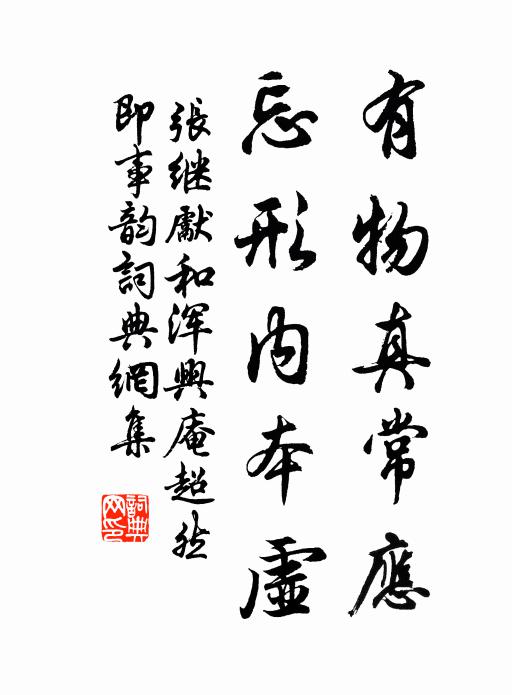 有物真常應
忘形内本虛
張继獻和渾興庵超然
即事韵詞典網集
詞典
网印